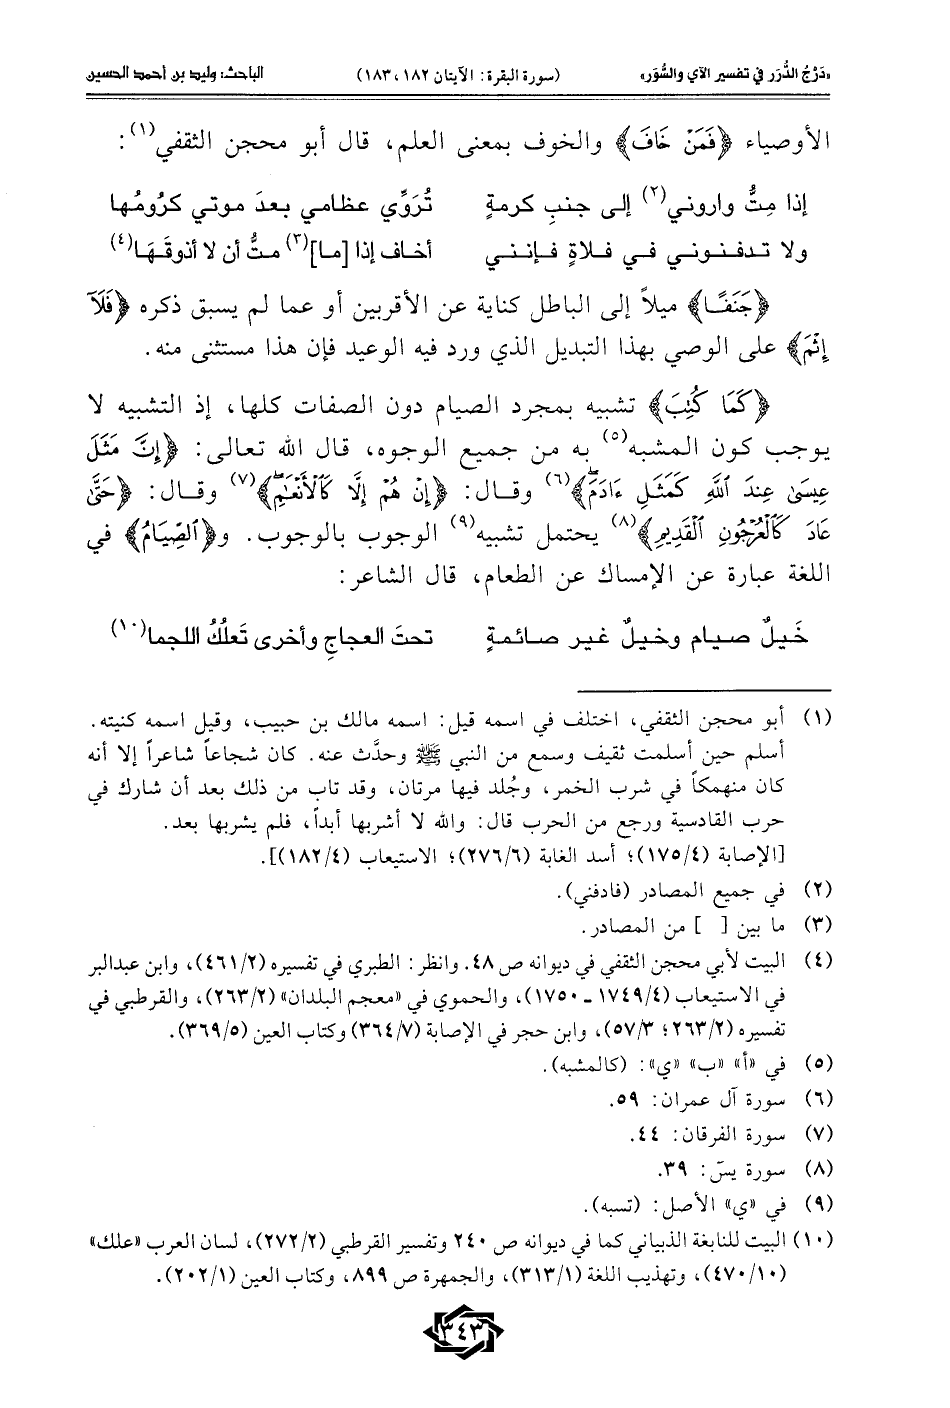 «دَرْجُ الدُّرَر في تفسير الآي والسُّوَر» (سورة البقرة: الآيتان ١٨٢، ١٨٣) الباحث: وليد بن أحمد الحسين
الأوصياء ﴿فَمَنْ خَافَ﴾ والخوف بمعنى العلم، قال أبو محجن الثقفي(١):
إذا مِتُّ واروني(٢) إلى جنبِ كرمةٍ تُرَوِّي عظامي بعدَ موتي كرُومُها
ولا تدفنوني في فلاةٍ فإنني أخاف إذا [ما](٣) متُّ أن لا أذوقَهَا(٤)
﴿جَنَفًا﴾ ميلاً إلى الباطل كناية عن الأقربين أو عما لم يسبق ذكره ﴿فَلَآ
إِثْمَ﴾ على الوصي بهذا التبديل الذي ورد فيه الوعيد فإن هذا مستثنى منه.
﴿كَمَا كُتِبَ﴾ تشبيه بمجرد الصيام دون الصفات كلها، إذ التشبيه لا
يوجب كون المشبه(٥) به من جميع الوجوه، قال الله تعالى: ﴿إِنَّ مَثَلَ
عِيسَىٰ عِندَ ٱللَّهِ كَمَثَلِ ءَادَمَ﴾(٦) وقال: ﴿إِنْ هُمْ إِلَّا كَٱلْأَنْعَٰمِ﴾(٧) وقال: ﴿حَتَّىٰ
عَادَ كَٱلْعُرْجُونِ ٱلْقَدِيمِ﴾(٨) يحتمل تشبيه(٩) الوجوب بالوجوب. و﴿ٱلصِّيَامُ﴾ في
اللغة عبارة عن الإمساك عن الطعام، قال الشاعر:
خَيلٌ صيام وخيلٌ غير صائمةٍ تحتَ العجاجِ وأخرى تَعلُكُ اللجما(١٠)
(١) أبو محجن الثقفي، اختلف في اسمه قيل: اسمه مالك بن حبيب، وقيل اسمه كنيته.
أسلم حين أسلمت ثقيف وسمع من النبي ﷺ وحدَّث عنه. كان شجاعاً شاعراً إلا أنه
كان منهمكاً في شرب الخمر، وجُلد فيها مرتان، وقد تاب من ذلك بعد أن شارك في
حرب القادسية ورجع من الحرب قال: والله لا أشربها أبداً، فلم يشربها بعد.
[الإصابة (١٧٥/٤)؛ أسد الغابة (٢٧٦/٦)؛ الاستيعاب (١٨٢/٤)].
(٢) في جميع المصادر (فادفني).
(٣) ما بين [ ] من المصادر.
(٤) البيت لأبي محجن الثقفي في ديوانه ص ٤٨. وانظر: الطبري في تفسيره (٤٦١/٢)، وابن عبدالبر
في الاستيعاب (١٧٤٩/٤ ـ ١٧٥٠)، والحموي في «معجم البلدان» (٢٦٣/٢)، والقرطبي في
تفسيره (٢٦٣/٢؛ ٥٧/٣)، وابن حجر في الإصابة (٣٦٤/٧) وكتاب العين (٣٦٩/٥).
(٥) في «أ» «ب» «ي»: (كالمشبه).
(٦) سورة آل عمران: ٥٩.
(٧) سورة الفرقان: ٤٤.
(٨) سورة يسٓ: ٣٩.
(٩) في «ي» الأصل: (تسبه).
(١٠) البيت للنابغة الذبياني كما في ديوانه ص ٢٤٠ وتفسير القرطبي (٢٧٢/٢)، لسان العرب «علك»
(٤٧٠/١٠)، وتهذيب اللغة (٣١٣/١)، والجمهرة ص ٨٩٩، وكتاب العين (٢٠٢/١).
٣٤٣